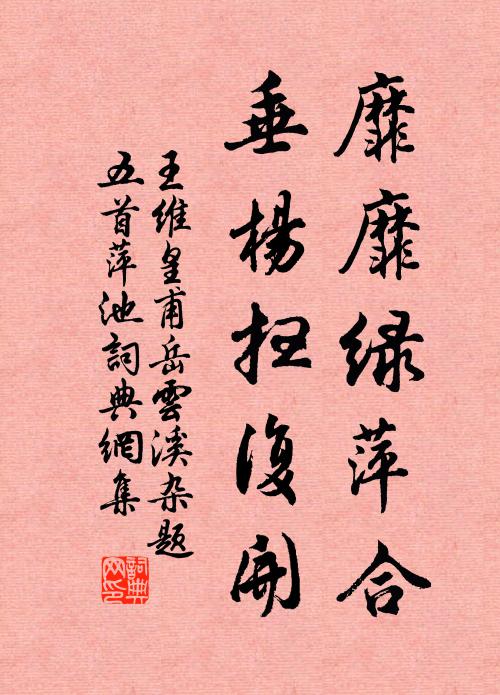 靡靡绿萍合
垂楊扫復開
王維皇甫岳雲溪杂题
五首萍池詞典網集
詞典
网印